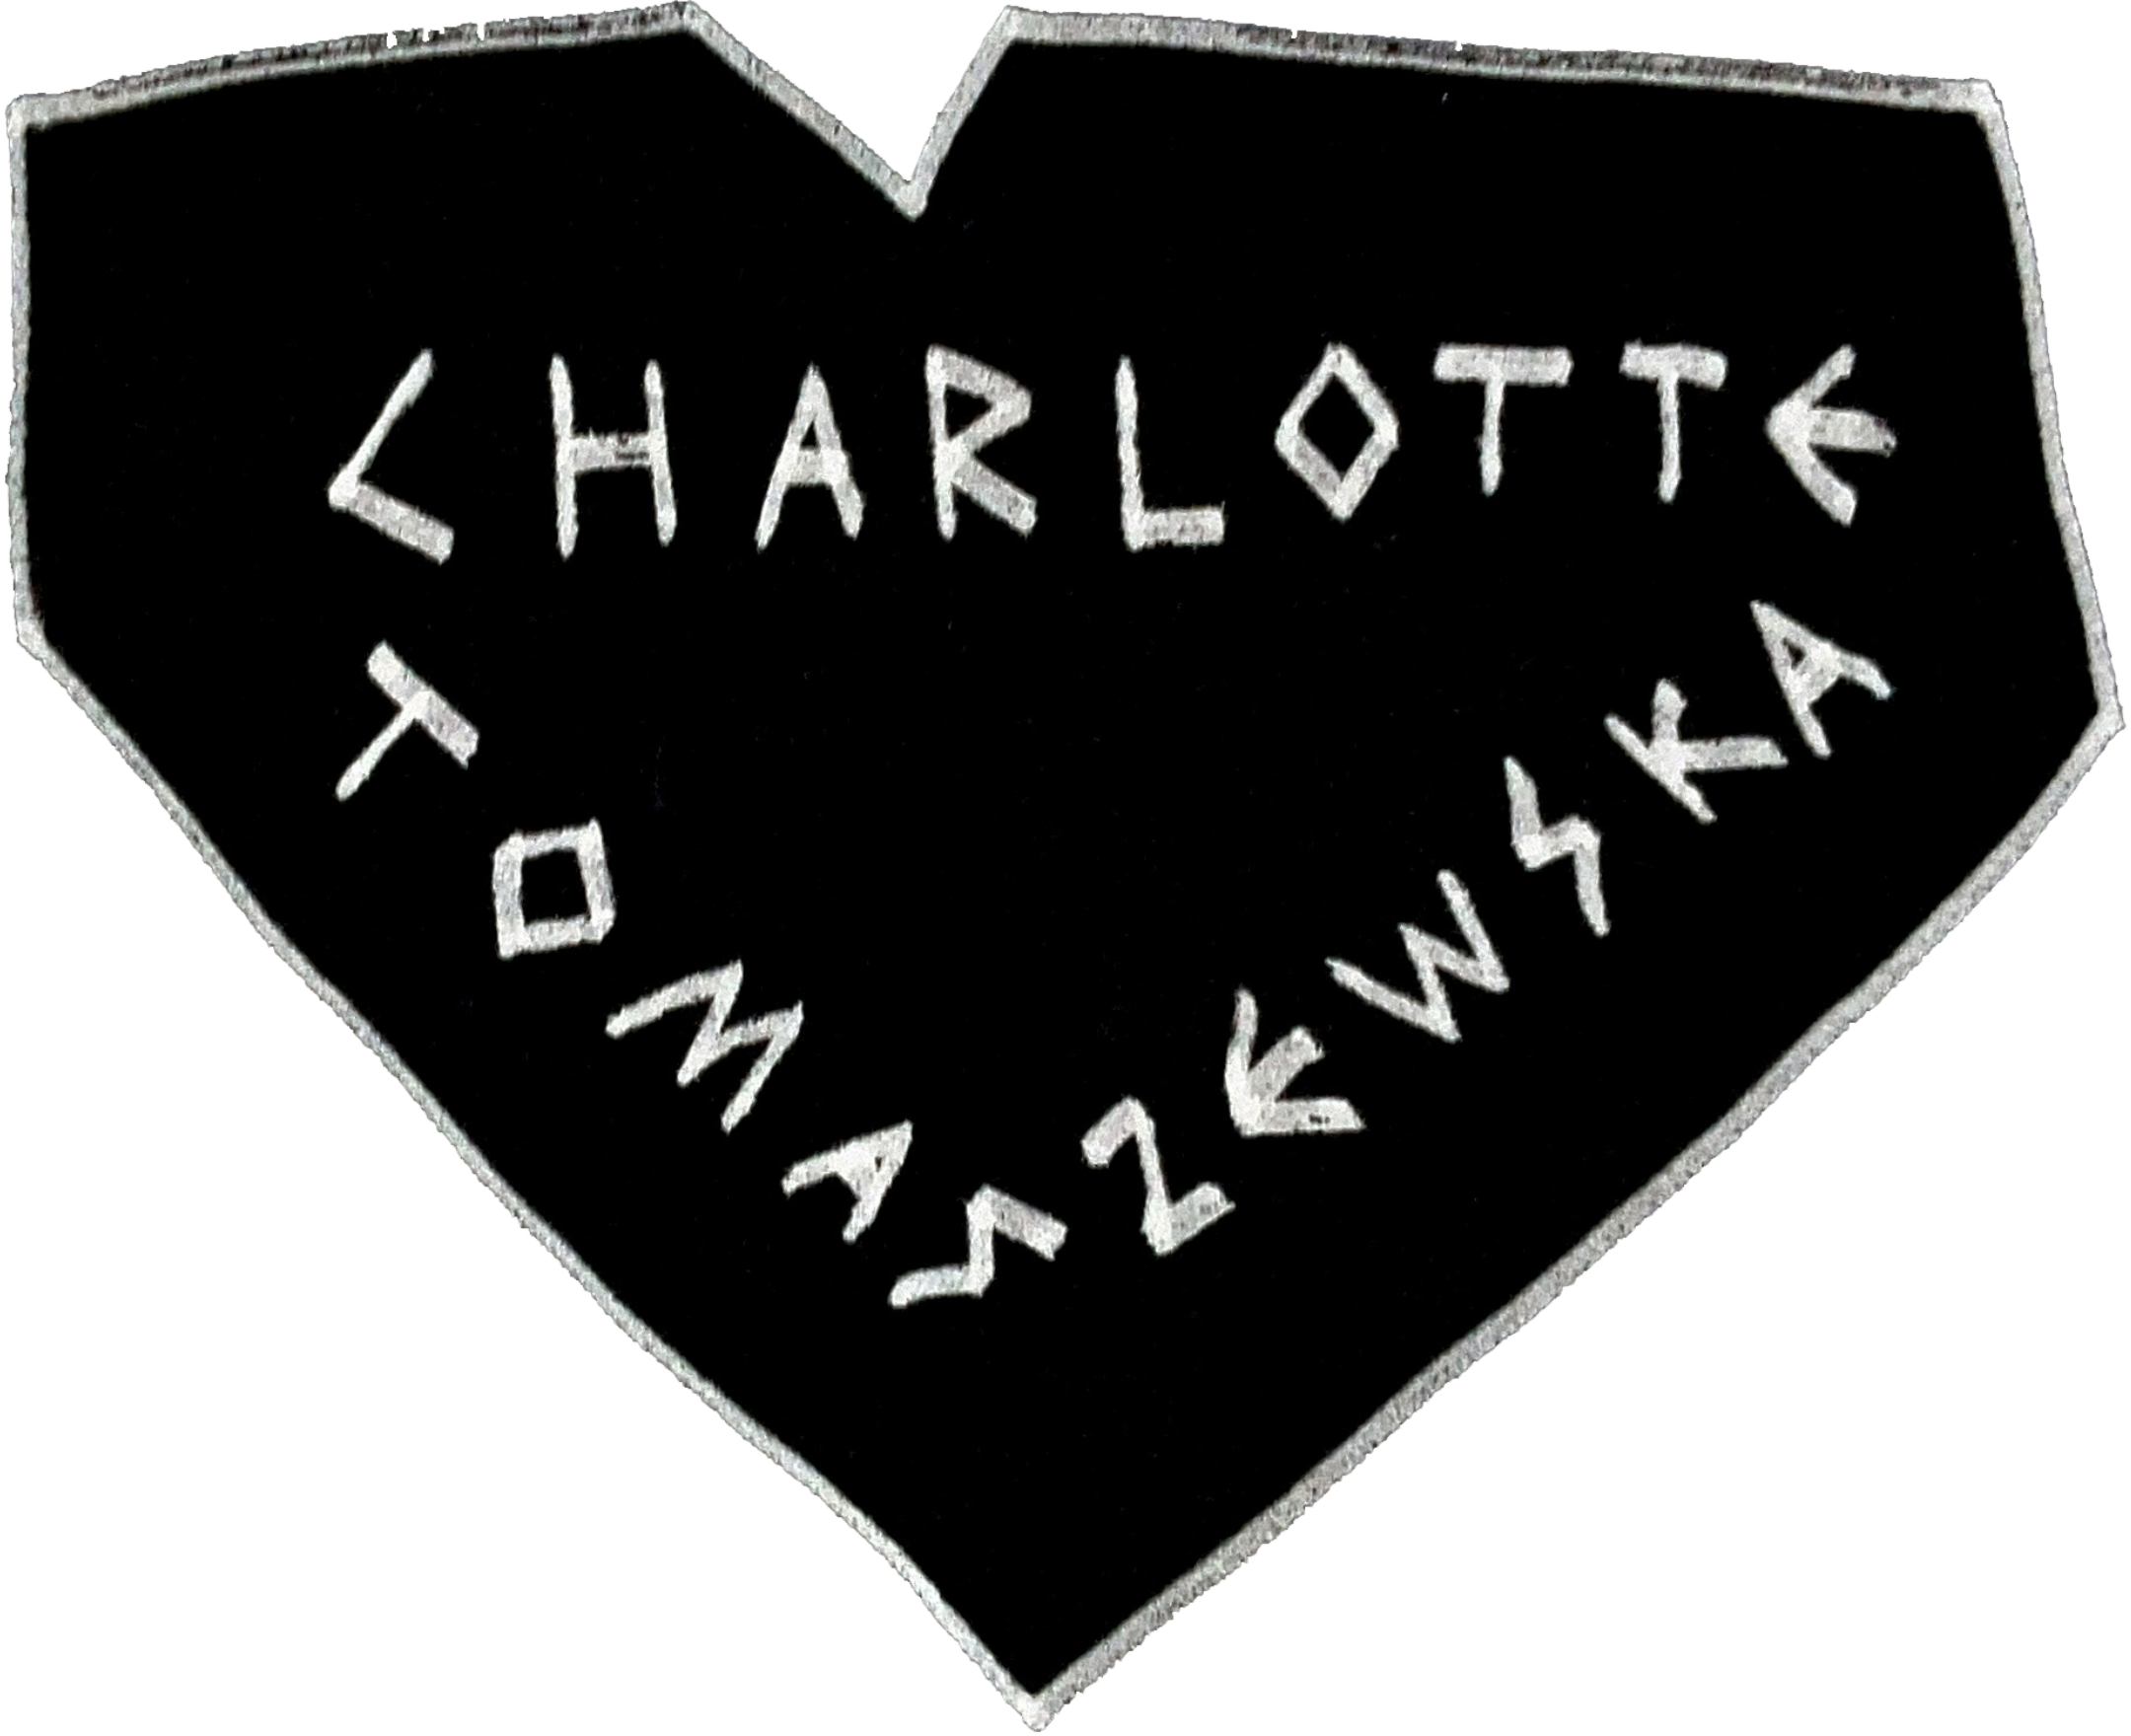 CHARLOTTE
TOMASZEWSKA